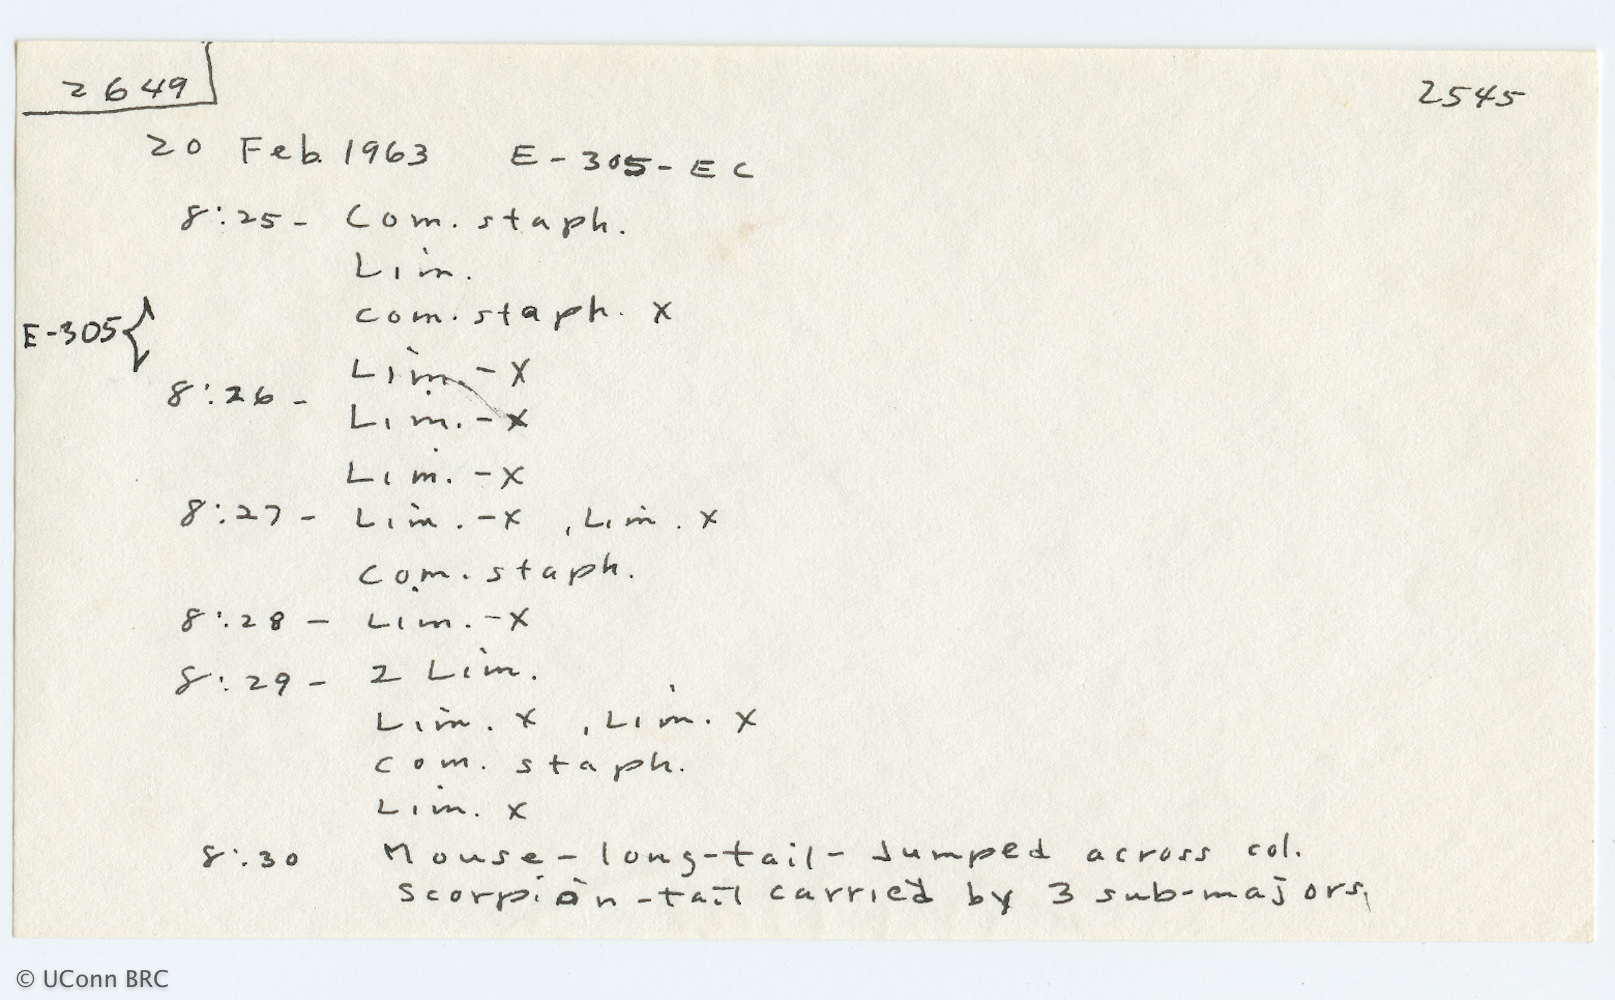 2649
2545
20 Feb. 1963 E-305-EC
8:25- Com. staph.
Lim.
com. staph. x
E-305{
Lim. - x
8:26-
Lim. - x
Lim. - x
8:27- Lim. - x , Lim. x
com. staph.
8:28 - Lim. - x
8:29 - 2 Lim.
Lim. x , Lim. x
com. staph.
Lim. x
8:30 Mouse - long-tail - Jumped across col.
Scorpion - tail carried by 3 sub-majors,
© UConn BRC